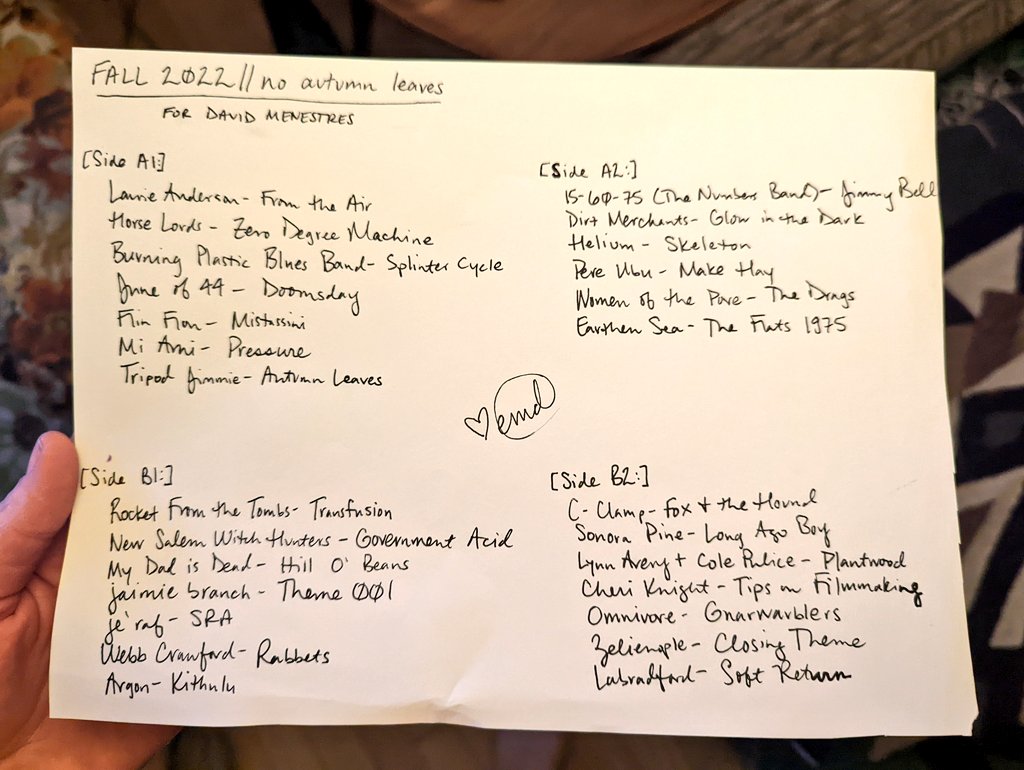 FALL 2022 // no autumn leaves
FOR DAVID MENESTRES
[Side A1:]
Laurie Anderson - From the Air
Horse Lords - Zero Degree Machine
Burning Plastic Blues Band - Splinter Cycle
June of 44 - Doomsday
Flin Flon - Mistassini
Mi Ami - Pressure
Tripod Jimmie - Autumn Leaves
[Side A2:]
15-60-75 (The Numbers Band) - Jimmy Bell
Dirt Merchants - Glow in the Dark
Helium - Skeleton
Pere Ubu - Make Hay
Women of the Pore - The Drags
Earthen Sea - The Flats 1975
♡ emd
[Side B1:]
Rocket From the Tombs - Transfusion
New Salem Witch Hunters - Government Acid
My Dad is Dead - Hill O' Beans
jaimie branch - Theme 001
je'raf - SRA
Webb Crawford - Rabbets
Argon - Kithulu
[Side B2:]
C-Clamp - Fox + the Hound
Sonora Pine - Long Ago Boy
Lynn Avery + Cole Pulice - Plantwood
Cheri Knight - Tips on Filmmaking
Omnivore - Gnarwarblers
Zelienople - Closing Theme
Labradford - Soft Return